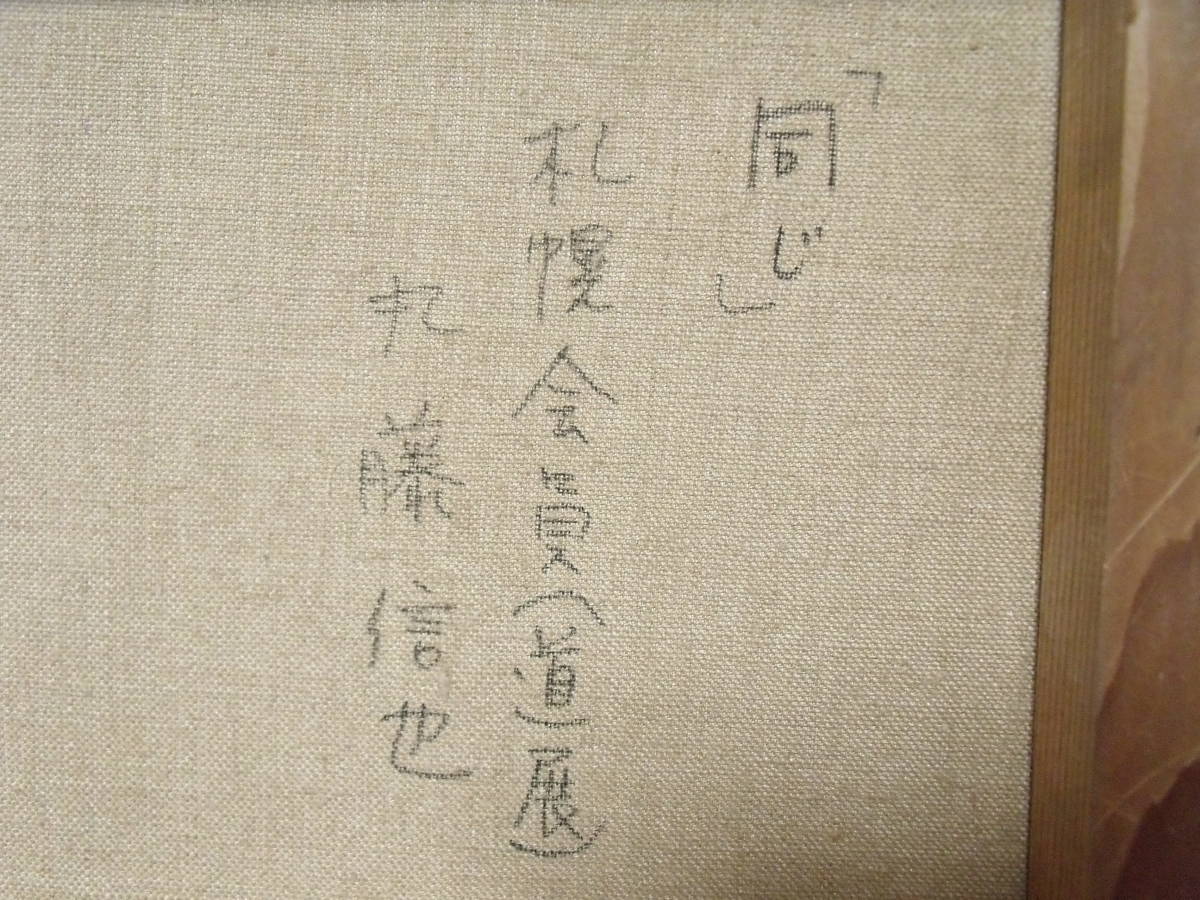 「同じ」
札幌会員(道展)
札藤信也